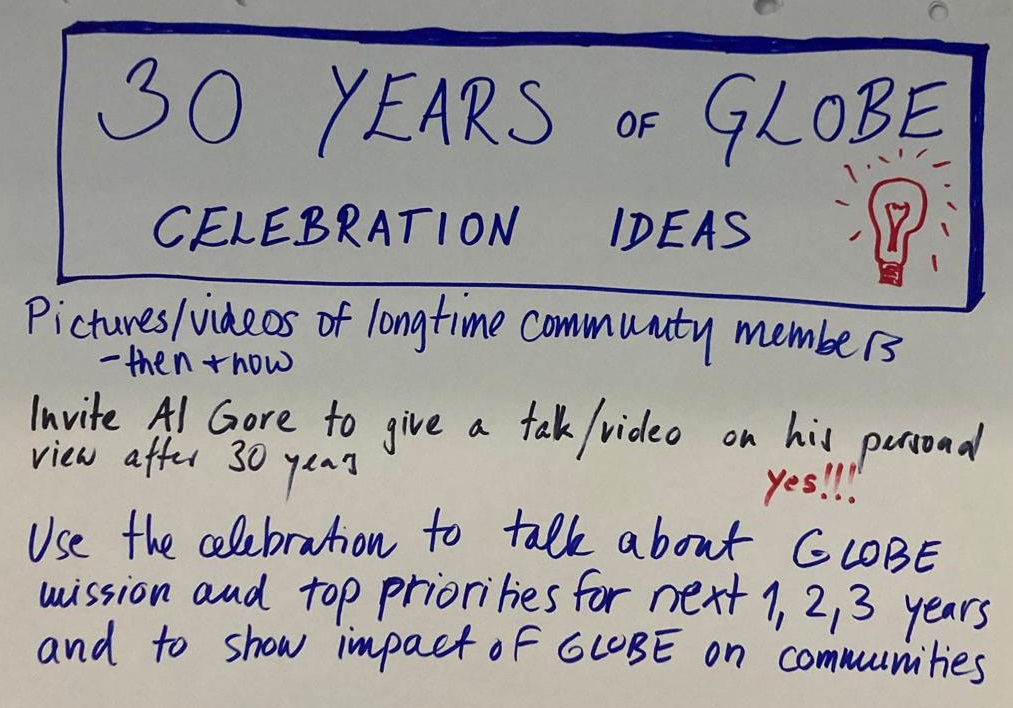 30 YEARS OF GLOBE
CELEBRATION IDEAS
Pictures/videos of longtime community members
- then + now
Invite Al Gore to give a talk/video on his personal
view after 30 years
yes!!!
Use the celebration to talk about GLOBE
mission and top priorities for next 1, 2, 3 years
and to show impact of GLOBE on communities